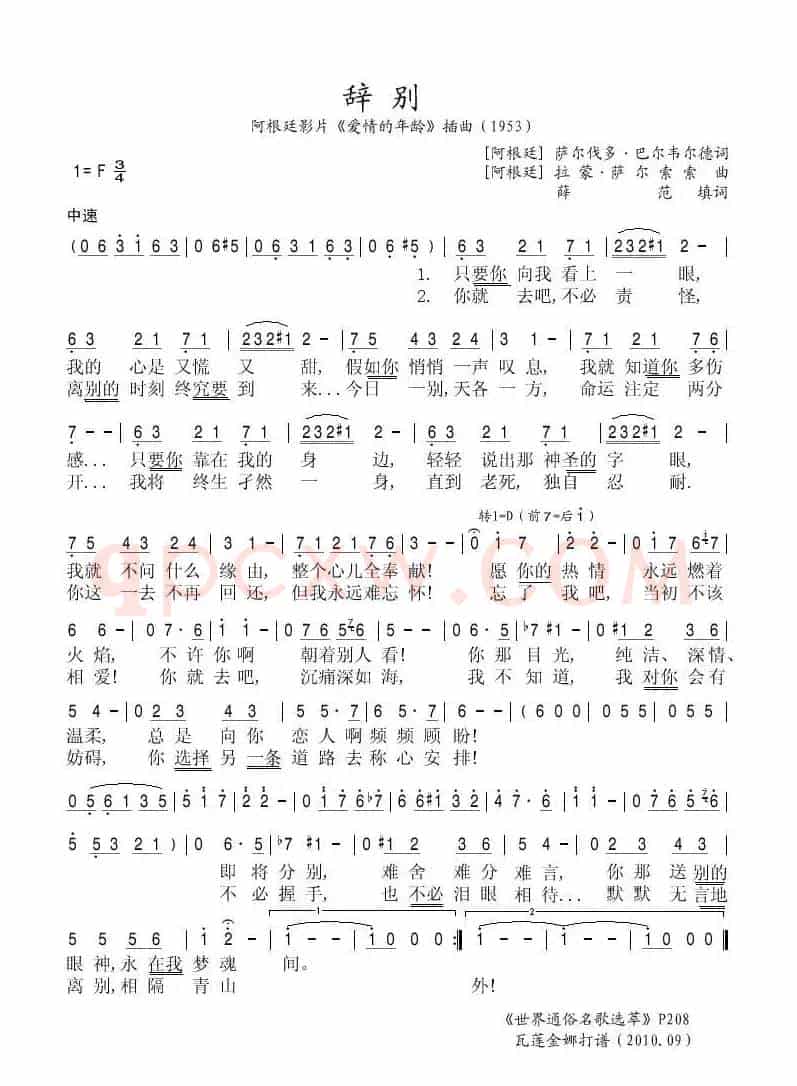 辞别
阿根廷影片《爱情的年龄》插曲(1953)
[阿根廷] 萨尔伐多·巴尔韦尔德词
1=F 3/4
[阿根廷] 拉蒙·萨尔索索 曲
薛 范 填词
中速
(0 6 3 1 6 3 | 0 6 #5 | 0 6 3 1 6 3 | 0 6 #5) | 6 3 2 1 7 1 | 2 3 2 #1 2 - |
1. 只要你 向我 看上 一 眼,
2. 你就 去吧,不必 责 怪,
6 3 2 1 7 1 | 2 3 2 #1 2 - | 7 5 4 3 2 4 | 3 1 - | 0 1 2 1 7 6 |
我的 心是 又慌 又 甜, 假如你 悄悄 一声 叹 息, 我就 知道你 多伤
离别的 时刻 终究要 到 来...今日 一别,天各 一 方, 命运 注定 两分
7 - - | 6 3 2 1 7 1 | 2 3 2 #1 2 - | 6 3 2 1 7 1 | 2 3 2 #1 2 - |
感... 只要你 靠在 我的 身 边, 轻轻 说出 那 神圣的 字 眼,
开... 我将 终生 孑然 一 身, 直到 老死, 独自 忍 耐.
转1=D (前7=后i)
7 5 4 3 2 4 | 3 1 - | 0 7 1 2 1 7 6 | 3 - - | 0 i 7 | 2 · 2 | 0 i 6 7 |
我就 不问 什么 缘 由, 整个 心儿 全奉 献! 愿 你的 热 情 永远 燃着
你这 一去 不再 回 还, 但我 永远 难忘 怀! 忘 了 我 吧, 当初 不该
6 6 · | 0 7 6 · | 0 i i · | 0 7 6 5 6 | 5 5 · | 0 7 6 · | 0 #1 2 · | 0 6 6 |
火 焰, 不 许 你 啊 朝着 别人 看! 你 那 目 光, 纯 洁、 深 情、
相 爱! 你 就 去 吧, 沉痛 深如 海, 我 不 知 道, 我 对你 会 有
5 4 - | 0 2 3 4 3 | 5 5 · | 6 · 5 | 6 7 6 · | (6 0 0 | 5 0 0 | 0 5 5 |
温柔, 总 是 向 你 恋 人 啊 频 频 顾 盼!
妨碍, 你 选择 另 一条 道 路 去 称 心 安 排!
0 5 6 1 3 5 | 5 i 7 | 2 2 · | 0 2 i 7 6 | 5 i 7 b7 | 6 6 #1 3 2 | 4 7 · 6 | 0 i i · | 0 7 6 5 6 |
5 5 3 2 1) | 0 6 · | b7 #1 · | 0 #1 2 | 4 3 · | 0 2 3 4 3 |
即 将 分 别, 难 舍 难 分 难 言, 你 那 送 别的
不 必 握 手, 也 不必 泪 眼 相 待... 默 默 无 言地
1 2
5 5 5 6 | i 2 - | i - - | i 0 0 0 :| i - - | i 0 0 0 ||
眼 神,永 在我 梦 魂 间。
离 别,相 隔 青 山 外!
《世界通俗名歌选萃》P208
瓦莲金娜打谱(2010.09)
qpcxw.com